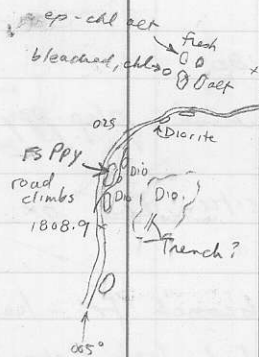 ep-chl alt
fresh
bleached, chl
alt
025
Diorite
FS PPY
Dio
road
climbs
Dio
Dio.
1808.9
Trench?
005°